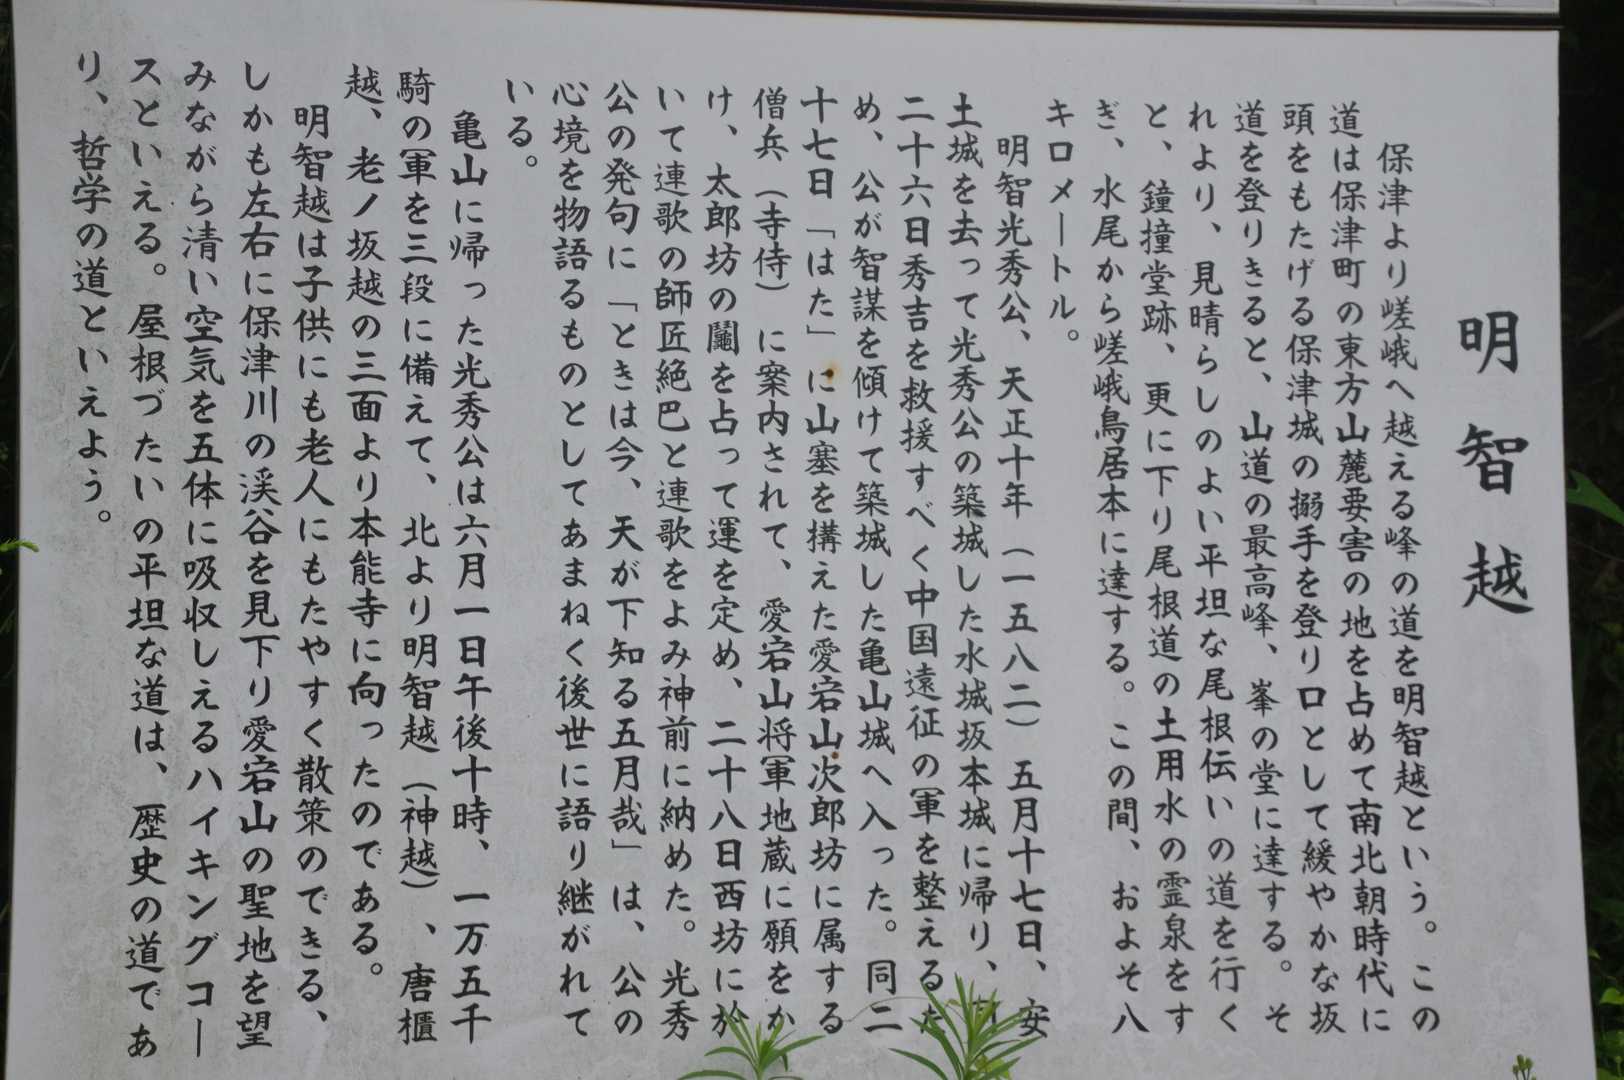 明智越
保津より嵯峨へ越える峰の道を明智越という。この
道は保津町の東方山麓要害の地を占めて南北朝時代に
頭をもたげる保津城の搦手を登り口として緩やかな坂
道を登りきると、山道の最高峰、峯の堂に達する。そ
れより、見晴らしのよい平坦な尾根伝いの道を行く
と、鐘撞堂跡、更に下り尾根道の土用水の霊泉をす
ぎ、水尾から嵯峨鳥居本に達する。この間、およそ八
キロメートル。
明智光秀公、天正十年(一五八二)五月十七日、安
土城を去って光秀公の築城した水城坂本城に帰り、
二十六日秀吉を救援すべく中国遠征の軍を整えるた
め、公が智謀を傾けて築城した亀山城へ入った。同二
十七日「はた」に山塞を構えた愛宕山次郎坊に属する
僧兵(寺侍)に案内されて、愛宕山将軍地蔵に願をか
け、太郎坊の鬮を占って運を定め、二十八日西坊に於
いて連歌の師匠絶巴と連歌をよみ神前に納めた。光秀
公の発句に「ときは今、天が下知る五月哉」は、公の
心境を物語るものとしてあまねく後世に語り継がれて
いる。
亀山に帰った光秀公は六月一日午後十時、一万五千
騎の軍を三段に備えて、北より明智越(神越)、唐櫃
越、老ノ坂越の三面より本能寺に向ったのである。
明智越は子供にも老人にもたやすく散策のできる、
しかも左右に保津川の渓谷を見下り愛宕山の聖地を望
みながら清い空気を五体に吸収しえるハイキングコー
スといえる。屋根づたいの平坦な道は、歴史の道であ
り、哲学の道といえよう。